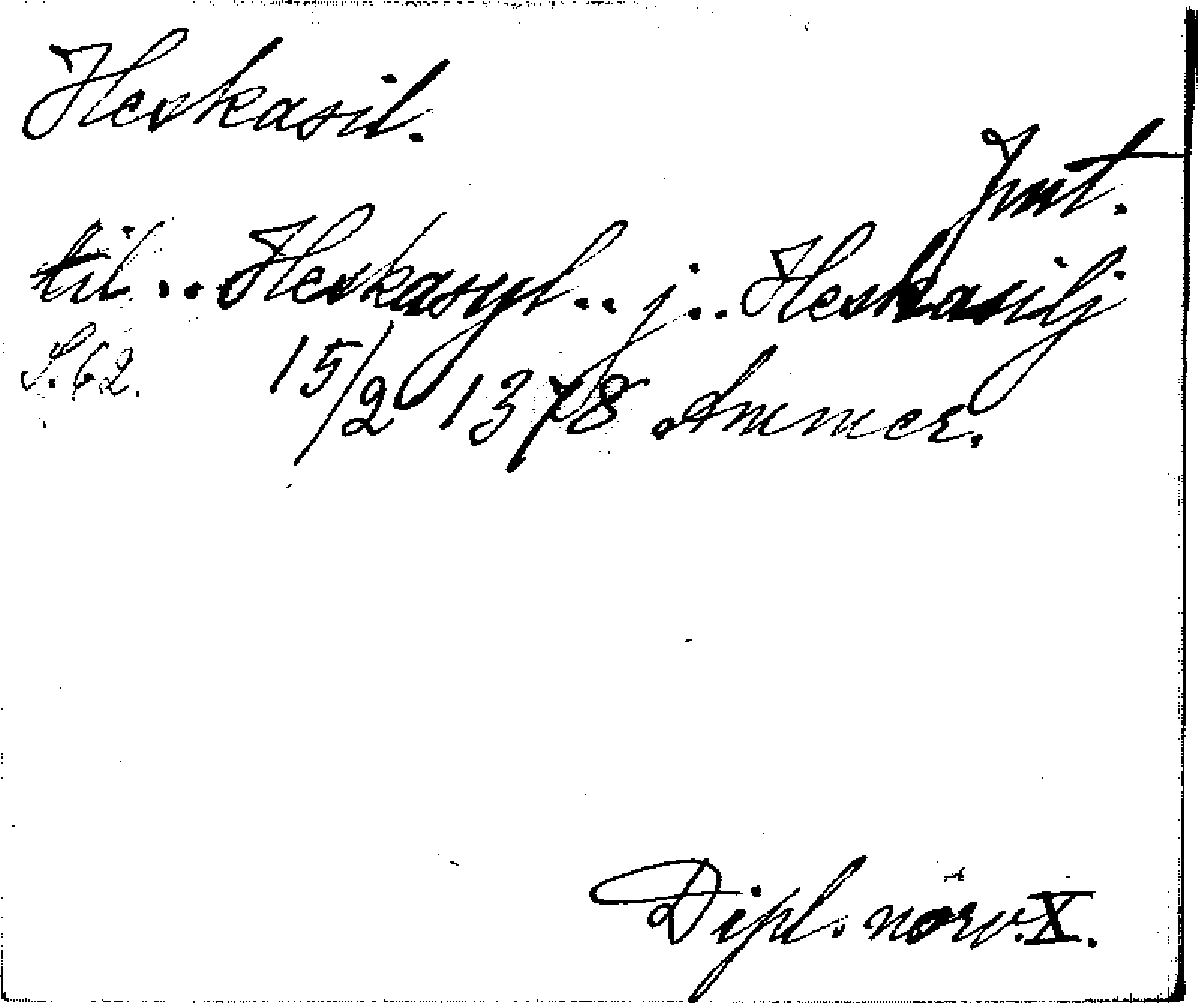 Heskasil.
Jmt.
til .. Heskasyl .. j .. Heskasilj
S. 62. 15/2 1378 Ammer.
Dipl. norv. X.